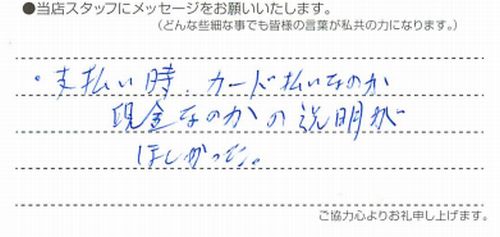 ●当店スタッフにメッセージをお願いいたします。
(どんな些細な事でも皆様の言葉が私共の力になります。)
・支払い時、カード払いなのか
現金なのかの説明が
ほしかった。
ご協力心よりお礼申し上げます。